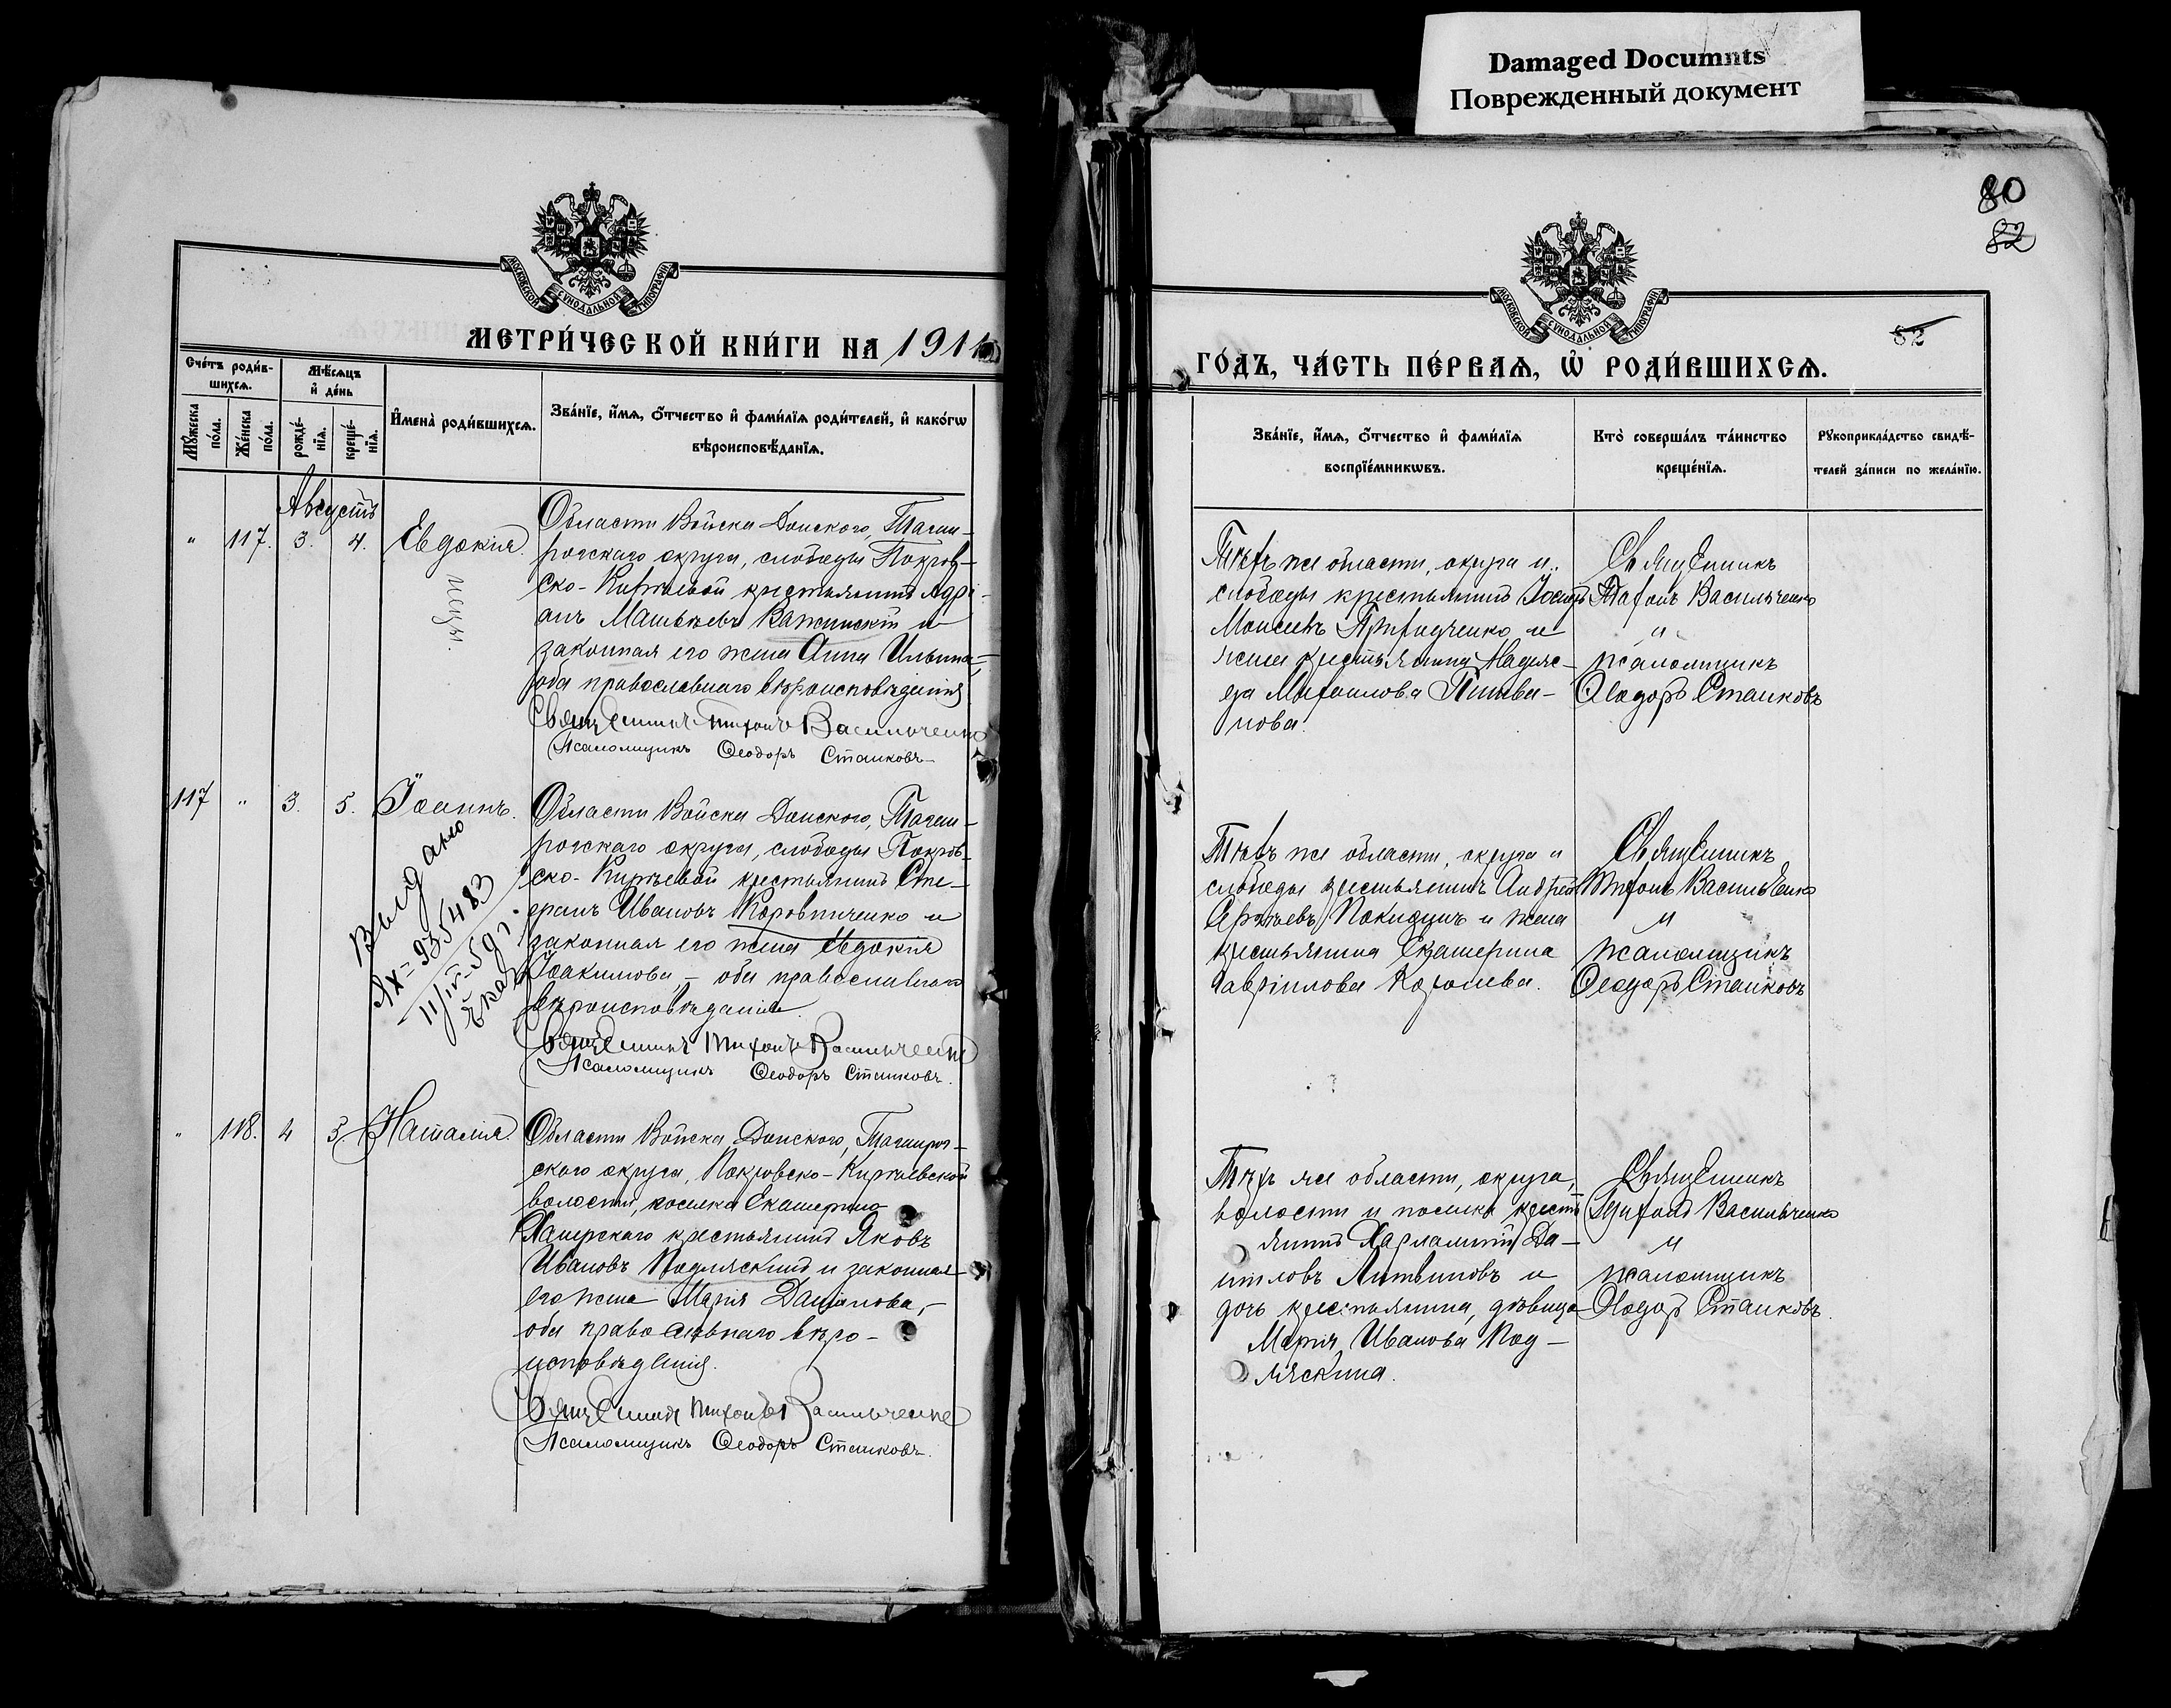 Damaged Documnts
Поврежденный документ
80
82
82
МОСКОВСКОЙ СѴНОДАЛЬНОЙ ТИПОГРАФІИ
МЕТРИ́ЧЕСКОЙ КНИ́ГИ НА 1911
Сче́тъ роди́в-
шихсѧ.
Мѣ́сяцъ
и҆ де́нь
Мꙋ́жеска по́ла.
Же́нска по́ла.
рожде́-нїѧ.
креще́-нїѧ.
И҆мена̀ роди́вшихсѧ.
Зва́нїе, и҆́мѧ, ѻ҆́тчество и҆ фами́лїѧ роди́телей, и҆ како́гѡ
вѣроисповѣ́данїѧ.
Августъ
" 117. 3. 4. Евдокія.
Области Войска Донского, Таган-
рогскаго округа, слободы Покров-
ско-Киреевой крестьянинъ Адрі-
анъ Матвѣевъ Важинскій и
законная его жена Анна Ильина,
оба православнаго вѣроисповѣданія
Священникъ Тихонъ Васильченко
Псаломщикъ Ѳеодоръ Станковъ
117 " 3. 5. Іоаннъ.
Выдано
ЯХ-935483
11/IV-59 г.
Области Войска Донского, Таган-
рогскаго округа, слободы Покров-
ско-Киреевой крестьянинъ Сте-
фанъ Ивановъ Коровниченко и
законная его жена Евдокія
Іоакимова, - оба православнаго
вѣроисповѣданія.
Священникъ Тихонъ Васильченко
Псаломщикъ Ѳеодоръ Станковъ.
" 118. 4 5 Наталія.
Области Войска Донского, Таганрог-
скаго округа, Покровско-Киреевской
волости, поселка Екатерино-
Хаперскаго крестьянинъ Яковъ
Ивановъ Подляскинъ и законная
его жена Марія Данилова, -
оба православнаго вѣро-
исповѣданія.
Священникъ Тихонъ Васильченко
Псаломщикъ Ѳеодоръ Станковъ.
МОСКОВСКОЙ СѴНОДАЛЬНОЙ ТИПОГРАФІИ
ГО́ДЪ, ЧА́СТЬ ПЕ́РВАѦ, Ѡ҆ РОДИ́ВШИХСѦ.
Зва́нїе, и҆́мѧ, ѻ҆́тчество и҆ фами́лїѧ
воспрїе́мникѡвъ.
Кто̀ соверша́лъ та́инство
креще́нїѧ.
Рꙋкоприкла́дство свидѣ́-
телей за́писи по жела́нїю.
Тѣхъ же области, округа и
слободы крестьянинъ Іосифъ
Моисеевъ и
жена крестьянина Надеж-
да Михаилова
Священникъ
Тихонъ Васильченко
"
псаломщикъ
Ѳеодоръ Станковъ
Тѣхъ же области, округа и
слободы крестьянинъ Андрей
Сергѣевъ Покидинъ и жена
крестьянина Екатерина
Гавріилова Королева.
Священникъ
Тихонъ Васильченко
"
псаломщикъ
Ѳеодоръ Станковъ
Тѣхъ же области, округа,
волости и поселка кресть-
янинъ Харлампій Да-
ниловъ Литвиновъ и
дочь крестьянина, дѣвица
Марія Иванова Под-
ляскина.
Священникъ
Тихонъ Васильченко
"
псаломщикъ
Ѳеодоръ Станковъ.